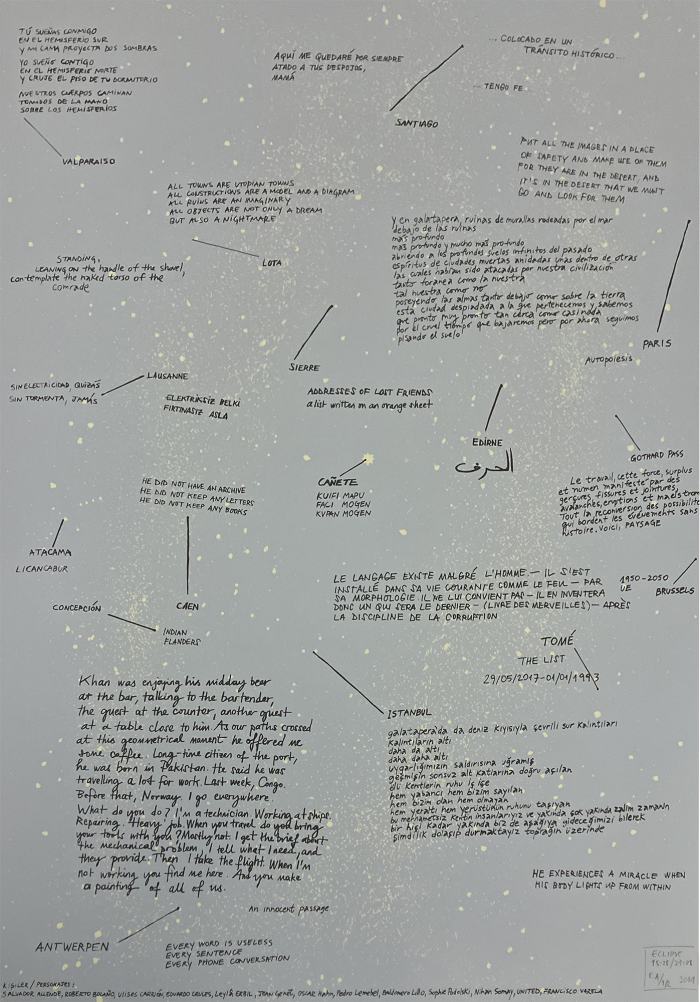 TÚ SUEÑAS CONMIGO
EN EL HEMISFERIO SUR
Y MI CAMA PROYECTA DOS SOMBRAS
YO SUEÑO CONTIGO
EN EL HEMISFERIE NORTE
Y CRUJE EL PISO DE TU DORMITORIO
NUESTROS CUERPOS CAMINAN
TOMADOS DE LA MANO
SOBRE LOS HEMISFERIOS
VALPARAISO
AQUÍ ME QUEDARÉ POR SIEMPRE
ATADO A TUS DESPOJOS,
MANÁ
... COLOCADO EN UN
TRÁNSITO HISTÓRICO...
... TENGO FE...
SANTIAGO
PUT ALL THE IMAGES IN A PLACE
OF SAFETY AND MAKE USE OF THEM
FOR THEY ARE IN THE DESERT, AND
IT'S IN THE DESERT THAT WE MUST
GO AND LOOK FOR THEM
ALL TOWNS ARE UTOPIAN TOWNS
ALL CONSTRUCTIONS ARE A MODEL AND A DIAGRAM
ALL RUINS ARE AN IMAGINARY
ALL OBJECTS ARE NOT ONLY A DREAM
BUT ALSO A NIGHTMARE
LOTA
STANDING,
LEANING on the handle of the shovel,
contemplate the naked torso of the
comrade
Y en galatapera, ruinas de murallas rodeadas por el mar
debajo de las ruinas
más profundo
más profundo y mucho más profundo
abriendo a los profundos suelos infinitos del pasado
espíritus de ciudades muertas anidadas unas dentro de otras
las cuales habían sido atacadas por nuestra civilización
tanto foránea como la nuestra
tal nuestra como no
poseyendo las almas tanto debajo como sobre la tierra
esta ciudad despiadada a la que pertenecemos y sabemos
que pronto muy pronto tan cerca como casi nada
por el cruel tiempo que bajaremos pero por ahora seguimos
pisando el suelo
PARIS
AUTOPOIESIS
SIERRE
LAUSANNE
SIN ELECTRICIDAD, QUIZÁS
SIN TORMENTA, JAMÁS
ELEKTRİKSİZ BELKİ
FIRTINASIZ ASLA
ADDRESSES OF LOST FRIENDS
a list written on an orange sheet
EDİRNE
الحرف
GOTHARD PASS
Le travail, cette force, surplus
et numen manifeste par des
gerçures, fissures et jointures,
avalanches, éruptions et maelstrom
Tout la reconversion des possibilité
qui bordent les événements sans
histoire. Voici, PAYSAGE
CAÑETE
KUIFI MAPU
FACI MOGEN
KVPAN MOGEN
HE DID NOT HAVE AN ARCHIVE
HE DID NOT KEEP ANY LETTERS
HE DID NOT KEEP ANY BOOKS
ATACAMA
LICANCABUR
CONCEPCIÓN
CAEN
INDIAN
FLANDERS
LE LANGAGE EXISTE MALGRÉ L'HOMME.— IL S'EST
INSTALLÉ DANS SA VIE COURANTE COMME LE FEU — PAR
SA MORPHOLOGIE. IL NE LUI CONVIENT PAS — IL EN INVENTERA
DONC UN QUI SERA LE DERNIER — (LIVRE DES MERVEILLES) — APRÈS
LA DISCIPLINE DE LA CORRUPTION
1950-2050
UE
BRUSSELS
TOMÉ
THE LIST
29/05/2017-01/01/1993
Khan was enjoying his midday beer
at the bar, talking to the bartender,
the guest at the counter, another guest
at a table close to him. As our paths crossed
at this geometrical moment he offered me
some coffee. Long-time citizen of the port,
he was born in Pakistan. He said he was
travelling a lot for work. Last week, Congo.
Before that, Norway. I go everywhere.
What do you do? I'm a technician. Working at ships.
Repairing. Heavy job. When you travel do you bring
your tools with you? Mostly not. I get the brief about
the mechanical problem, I tell what I need, and
they provide. Then I take the flight. When I'm
not working you find me here. And you make
a painting of all of us.
An innocent passage
ISTANBUL
galatapera'da da deniz kıyısıyla çevrili sur kalıntıları
kalıntıların altı
daha da altı
daha daha altı
uygarlığımızın saldırısına uğramış
geçmişin sonsuz alt katlarına doğru açılan
ölü kentlerin ruhu iç içe
hem yabancı hem bizim sayılan
hem bizim olan hem olmayan
hem yeraltı hem yerüstünün ruhunu taşıyan
bu merhametsiz kentin insanlarıyız ve yakında çok yakında zalim zamanın
bir hiçi kadar yakında biz de aşağıya gideceğimizi bilerek
şimdilik dolaşıp durmaktayız toprağın üzerinde
HE EXPERIENCES A MIRACLE WHEN
HIS BODY LIGHTS UP FROM WITHIN
ANTWERPEN
EVERY WORD IS USELESS
EVERY SENTENCE
EVERY PHONE CONVERSATION
ECLIPSE
KİŞİLER / PERSONAJES:
SALVADOR ALLENDE, ROBERTO BOLAÑO, ULISES CARRIÓN, EDUARDO LALLES, Leylâ ERBİL, JEAN Genêt, OSCAR Hahn, Pedro Lemebel, Baldomero Lillo, Sophie Podolski, Nihan Somay, UNITED, FRANCISCO VARELA